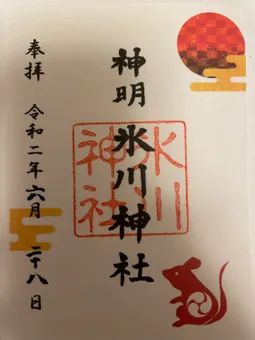 神明氷川神社
奉拝 令和二年六月二十八日
氷川
神社